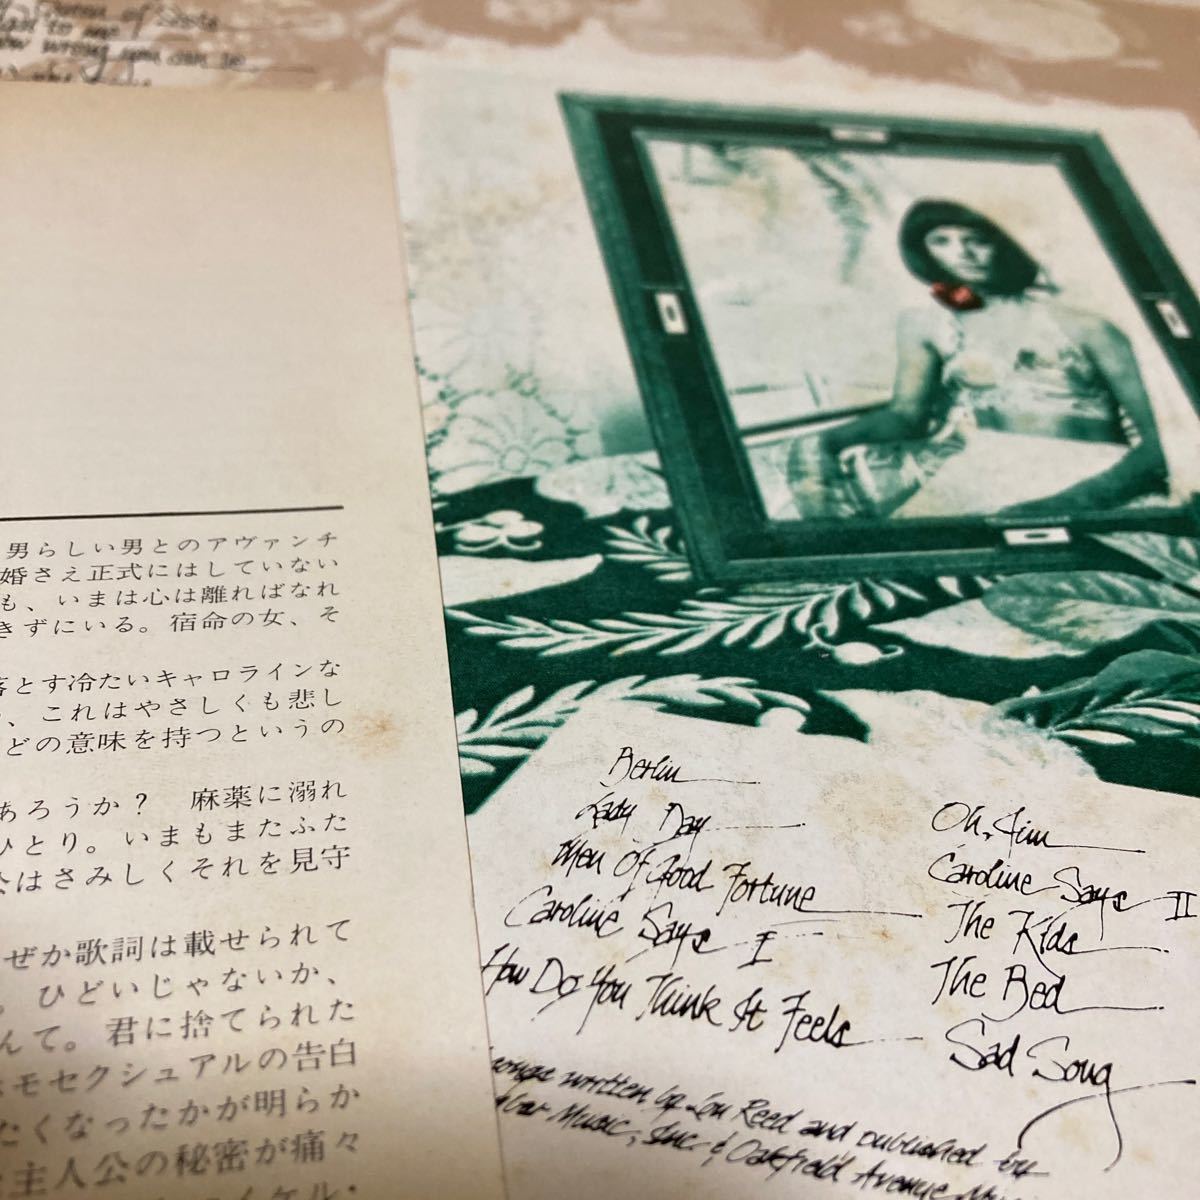 Queen of
to me
how wrong you can be
男らしい男とのアヴァンチ
婚さえ正式にはしていない
も、いまは心は離ればなれ
きずにいる。宿命の女、そ
落とす冷たいキャロラインな
、これはやさしくも悲し
どの意味を持つというの
あろうか？　麻薬に溺れ
ひとり。いまもまたふた
はさみしくそれを見守
ぜか歌詞は載せられて
。ひどいじゃないか、
んて。君に捨てられた
ホモセクシュアルの告白
たくなったかが明らか
主人公の秘密が痛々
イケル・
Berlin
Lady Day
Men Of Good Fortune
Caroline Says I
How Do You Think It Feels
Oh, Jim
Caroline Says II
The Kids
The Bed
Sad Song
songs written by Lou Reed and published by
Music, Inc. & Oakfield Avenue